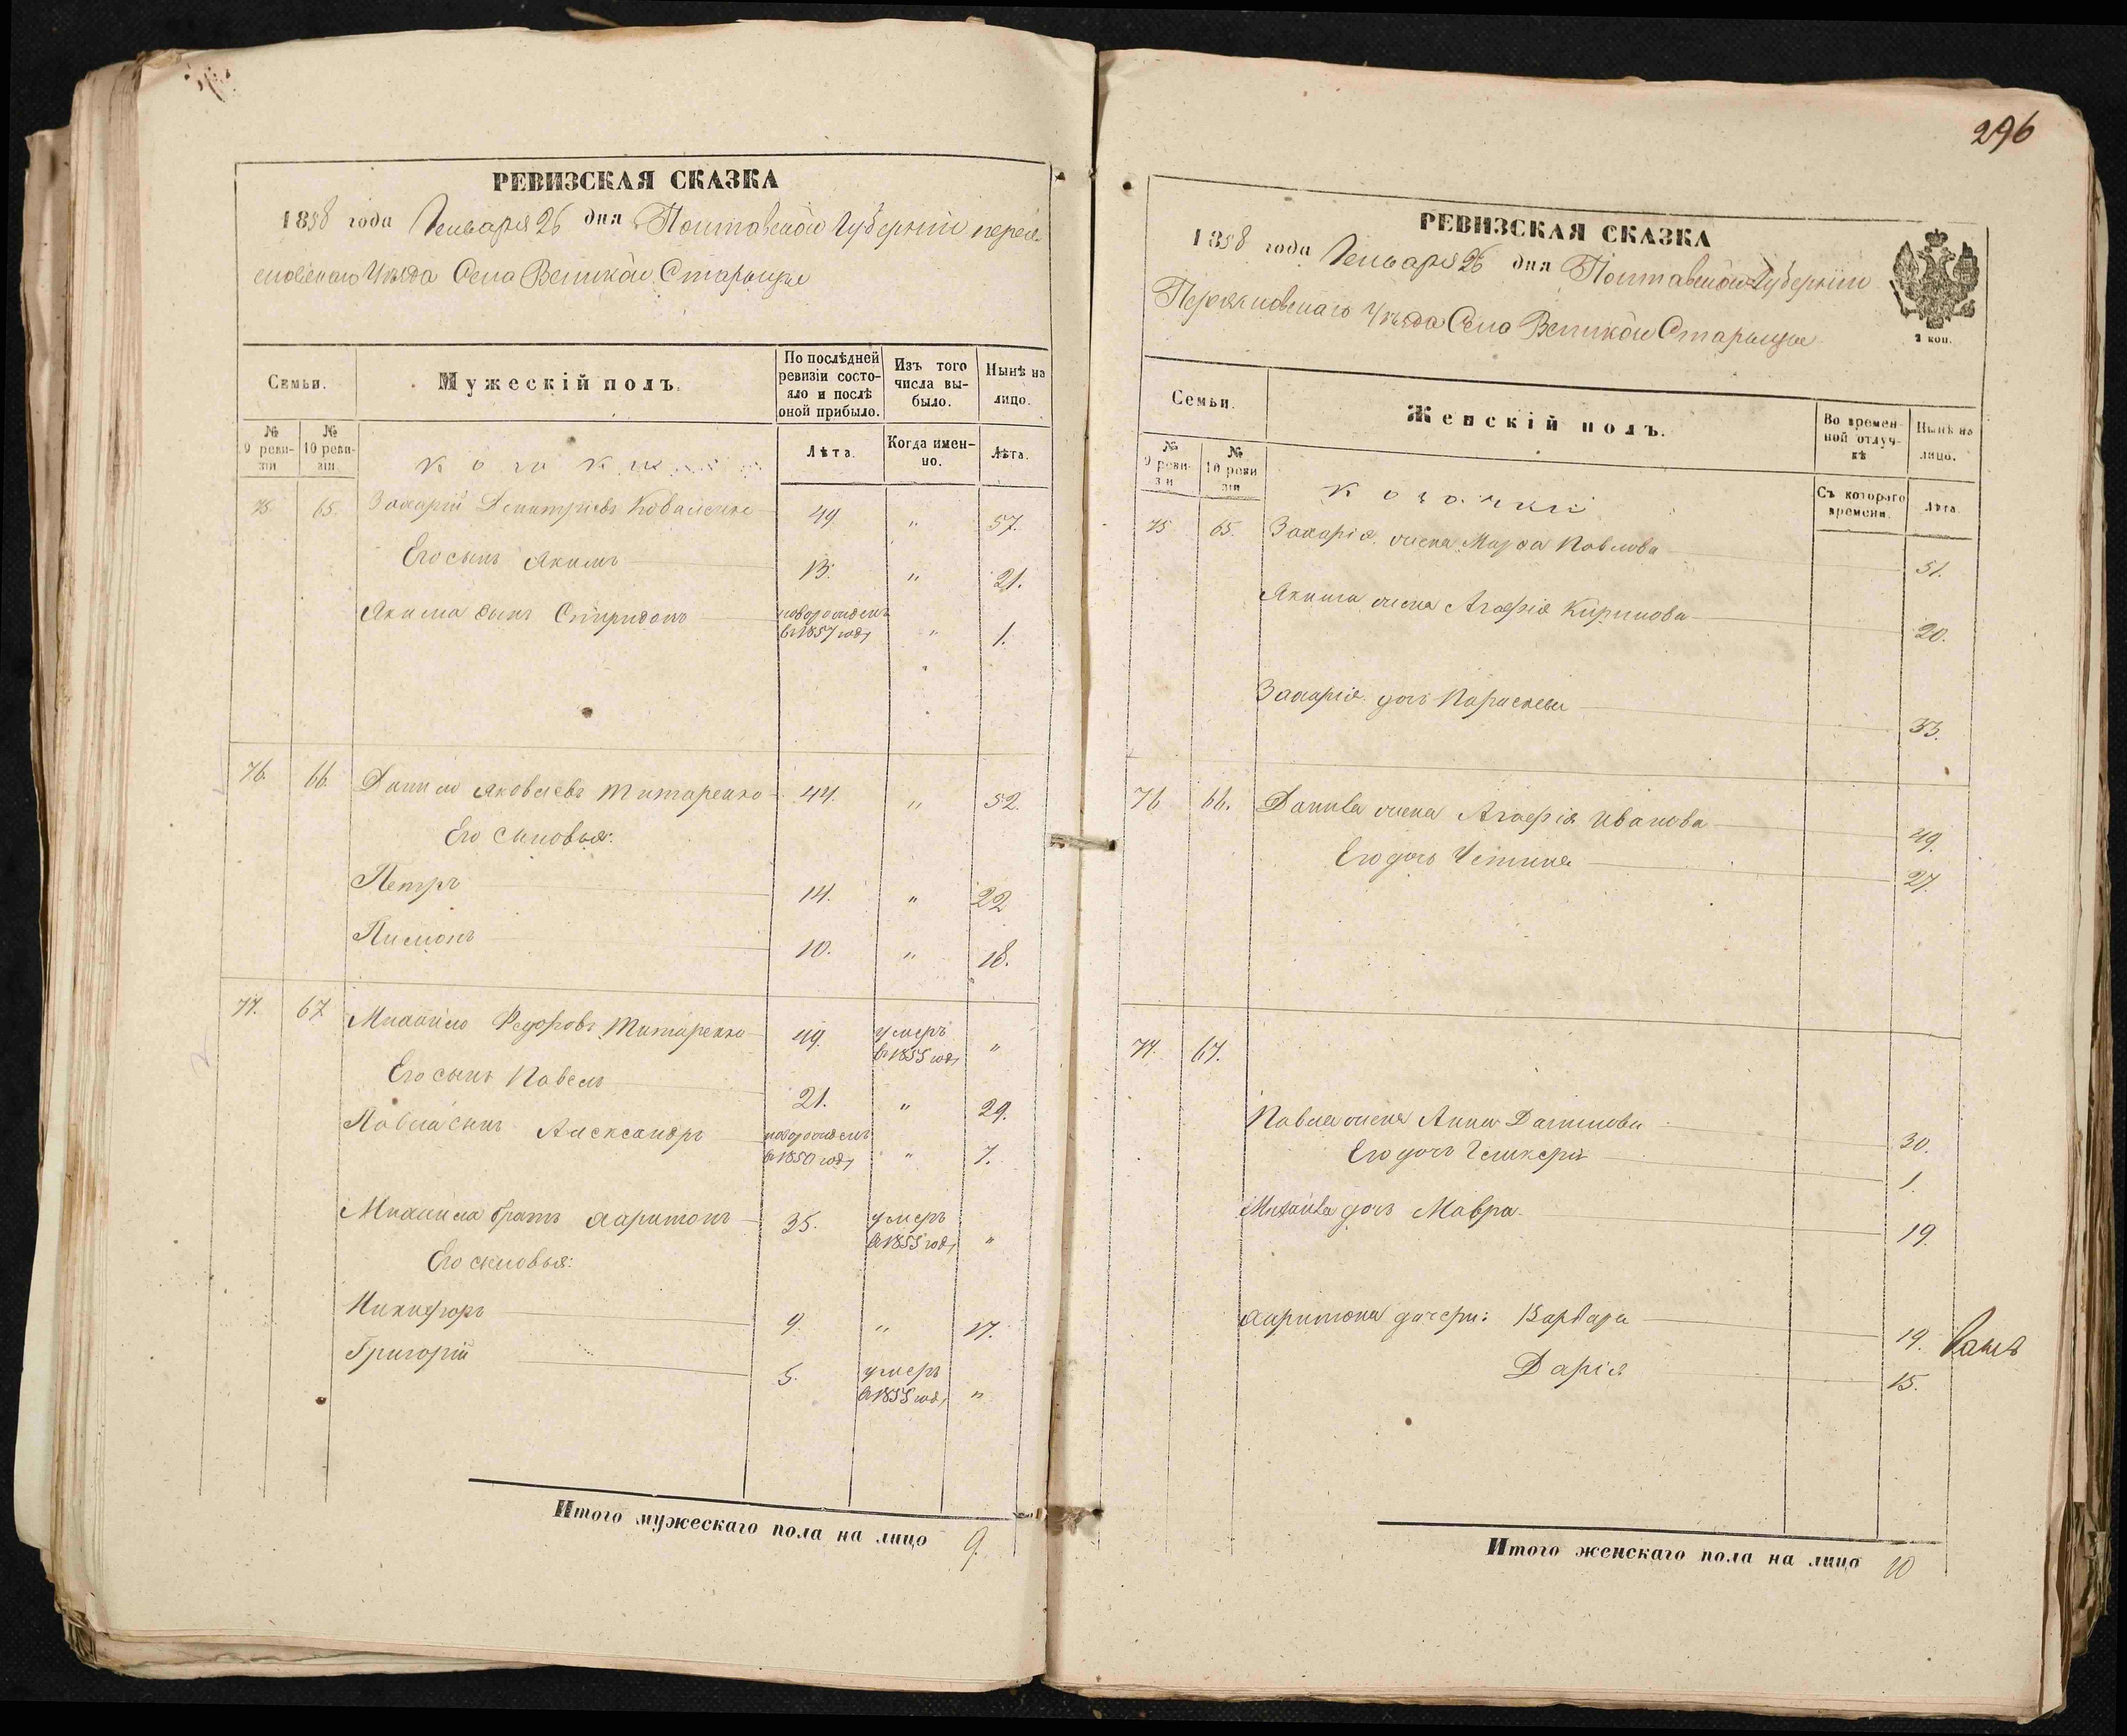 РЕВИЗСКАЯ СКАЗКА
1858 года Генваря 26 дня Полтавской Губернии переяс-
ловского Уѣзда Села Великой Старыцы
Семьи.
Мужескій полъ.
По послѣдней ревизіи состояло и послѣ оной прибыло.
Изъ того числа выбыло.
Нынѣ на лицо.
№ 9 ревизіи
№ 10 ревизіи
Лѣта.
Когда именно.
Лѣта.
75. 65. Захарій Дмитріевъ Коваленко 49. " 57.
Его сынъ Якимъ 13. " 21.
Якима сынъ Спиридонъ новорожденъ в 1857 году " 1.
76. 66. Данило Яковлевъ Титаренко 44. " 52.
Его сыновья:
Петръ 14. " 22
Пимонъ 10. " 18.
77. 67. Михайло Федоровъ Титаренко 49. умеръ в 1855 году "
Его сынъ Павелъ 21. " 29.
Павла сынъ Александръ новорожденъ в 1850 году " 7.
Михаила братъ Харитонъ 35. умеръ в 1855 году "
Его сыновья:
Никифоръ 9. " 17.
Григорій 5. умеръ в 1855 году "
Итого мужескаго пола на лицо 9.
296
РЕВИЗСКАЯ СКАЗКА
1858 года Генваря 26 дня Полтавской Губерніи
Переясловскаго Уѣзда Села Великой Старыцы
2 коп.
Семьи.
Женскій полъ.
Во временной отлучкѣ
Нынѣ на лицо.
№ 9 ревизіи
№ 10 ревизіи
Козачки
Съ котораго времени.
Лѣта
75 65. Захарія жена Марфа Павлова 51.
Якима жена Агафія Кирилова 20.
Захарія дочь Параскева 33.
76 66. Данила жена Агафія Иванова 49.
Его дочь Устинья 27.
77. 67.
Павла жена Анна Данилова 30.
Его дочь Гликерія 1.
Михаила дочь Мавра 19.
Харитона дочери: Варвара 19.
Дарія 15.
Итого женскаго пола на лицо 10